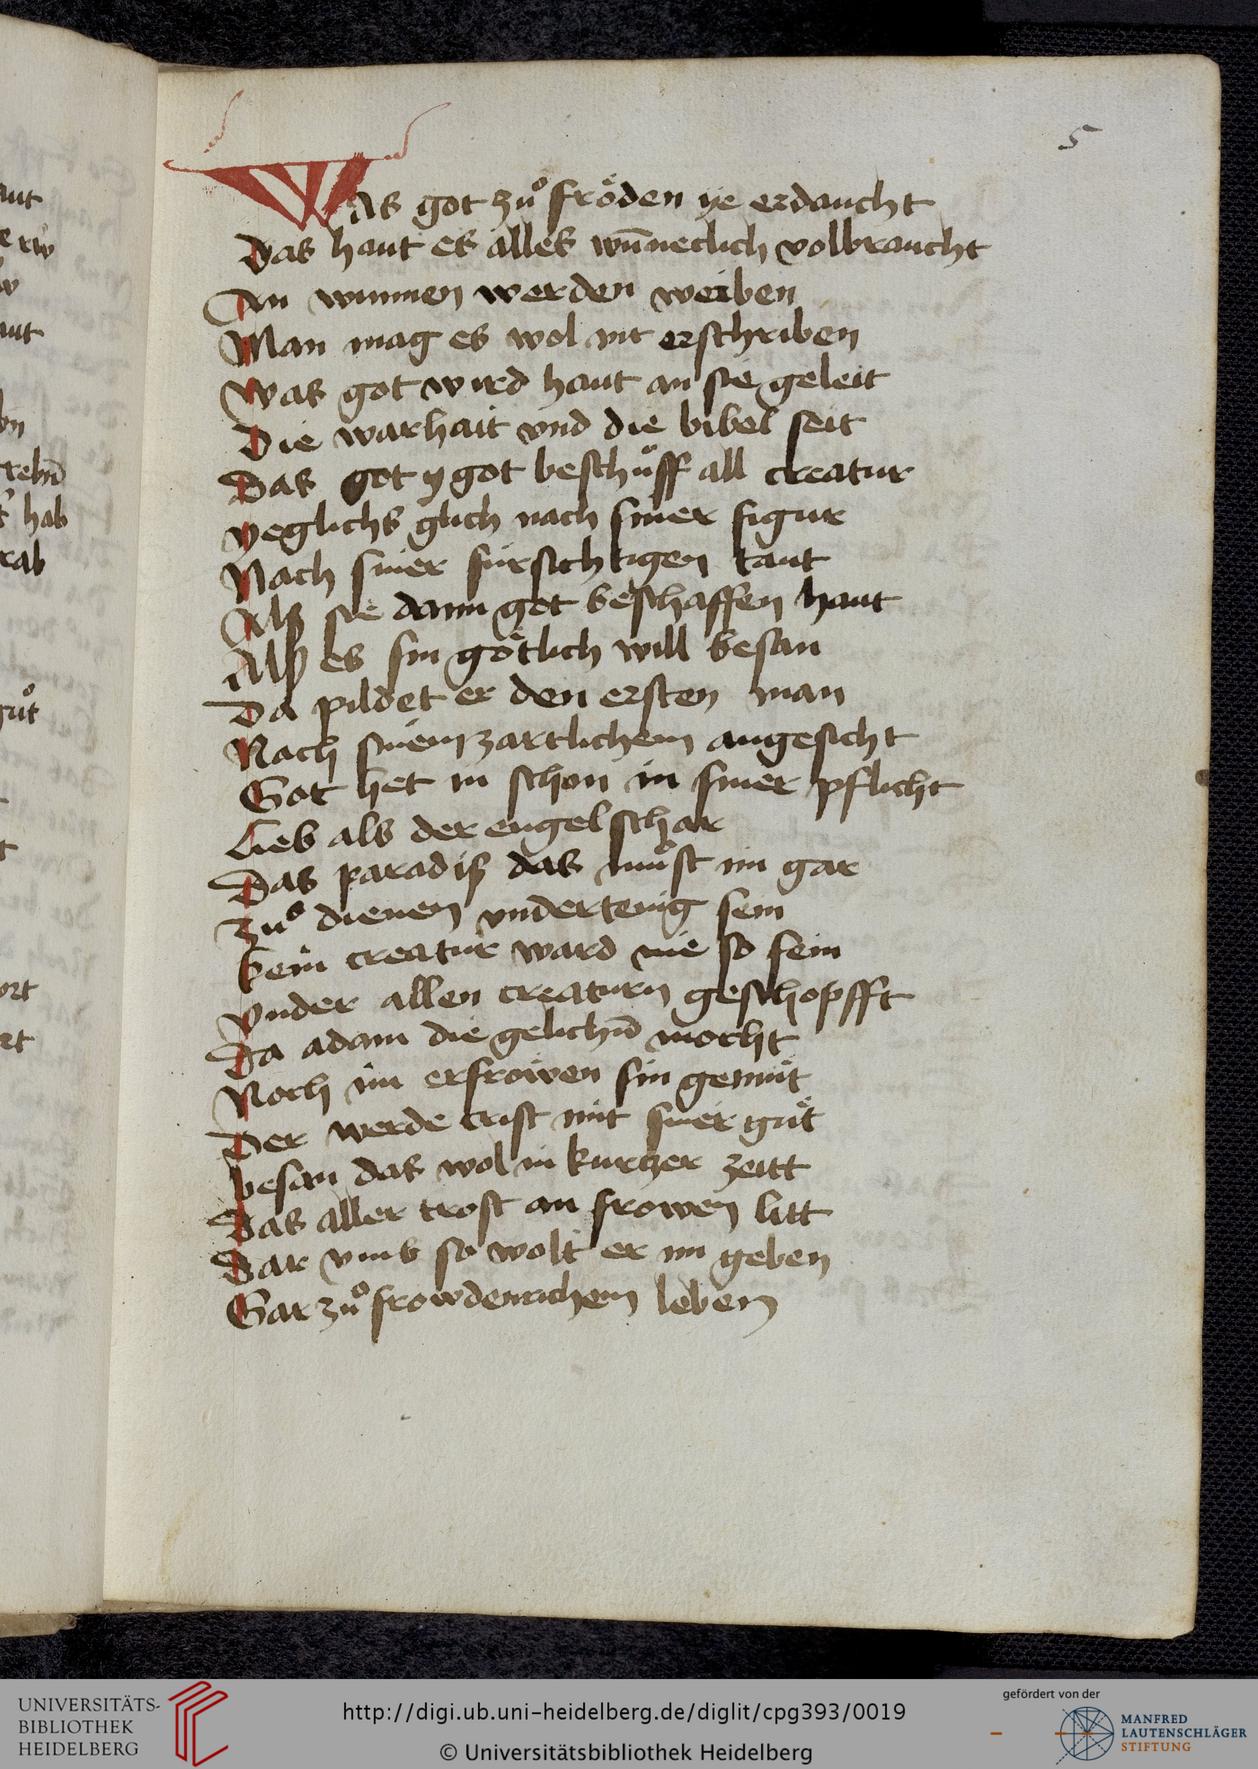 5
Was got zuͦ froͤden ye erdaucht
Das haut es alles wūneclich volbraucht
An wunnen werden weiben
Man mag es wol nit erschriben
Was got wird haut an sie geleit
Die warhait vnd die bibel seit
Das got y got beschuͤff all creatur
yeglichs glich nach siner figur
Nach siner fürsichtigen taut
Alß sie dann got beschaffen haut
Alß es sin goͤtlich will besan
Da pildet er den ersten man
Nach sinem zartlichem angesicht
Got het in schon in siner pflicht
Lieb als der engel schar
Das paradiß das muͦst im gar
Zuͦ dienen vndertenig sein
kein creatur ward nie so fein
Vnder allen creaturn geschopfft
Da adam die gelichn̄ mocht
Noch im erfroͤwen sin gemuͤt
Der werde crist mit siner guͤt
besan das wol in kurtzer zeitt
Das aller trost an frowen litt
Dar vmb so wolt er im geben
Gar zuͦ frowdenrichem leben
aut
aut
hab
rab
guͦt
ort
UNIVERSITÄTS-
BIBLIOTHEK
HEIDELBERG
http://digi.ub.uni-heidelberg.de/diglit/cpg393/0019
© Universitätsbibliothek Heidelberg
gefördert von der
MANFRED
LAUTENSCHLÄGER
STIFTUNG